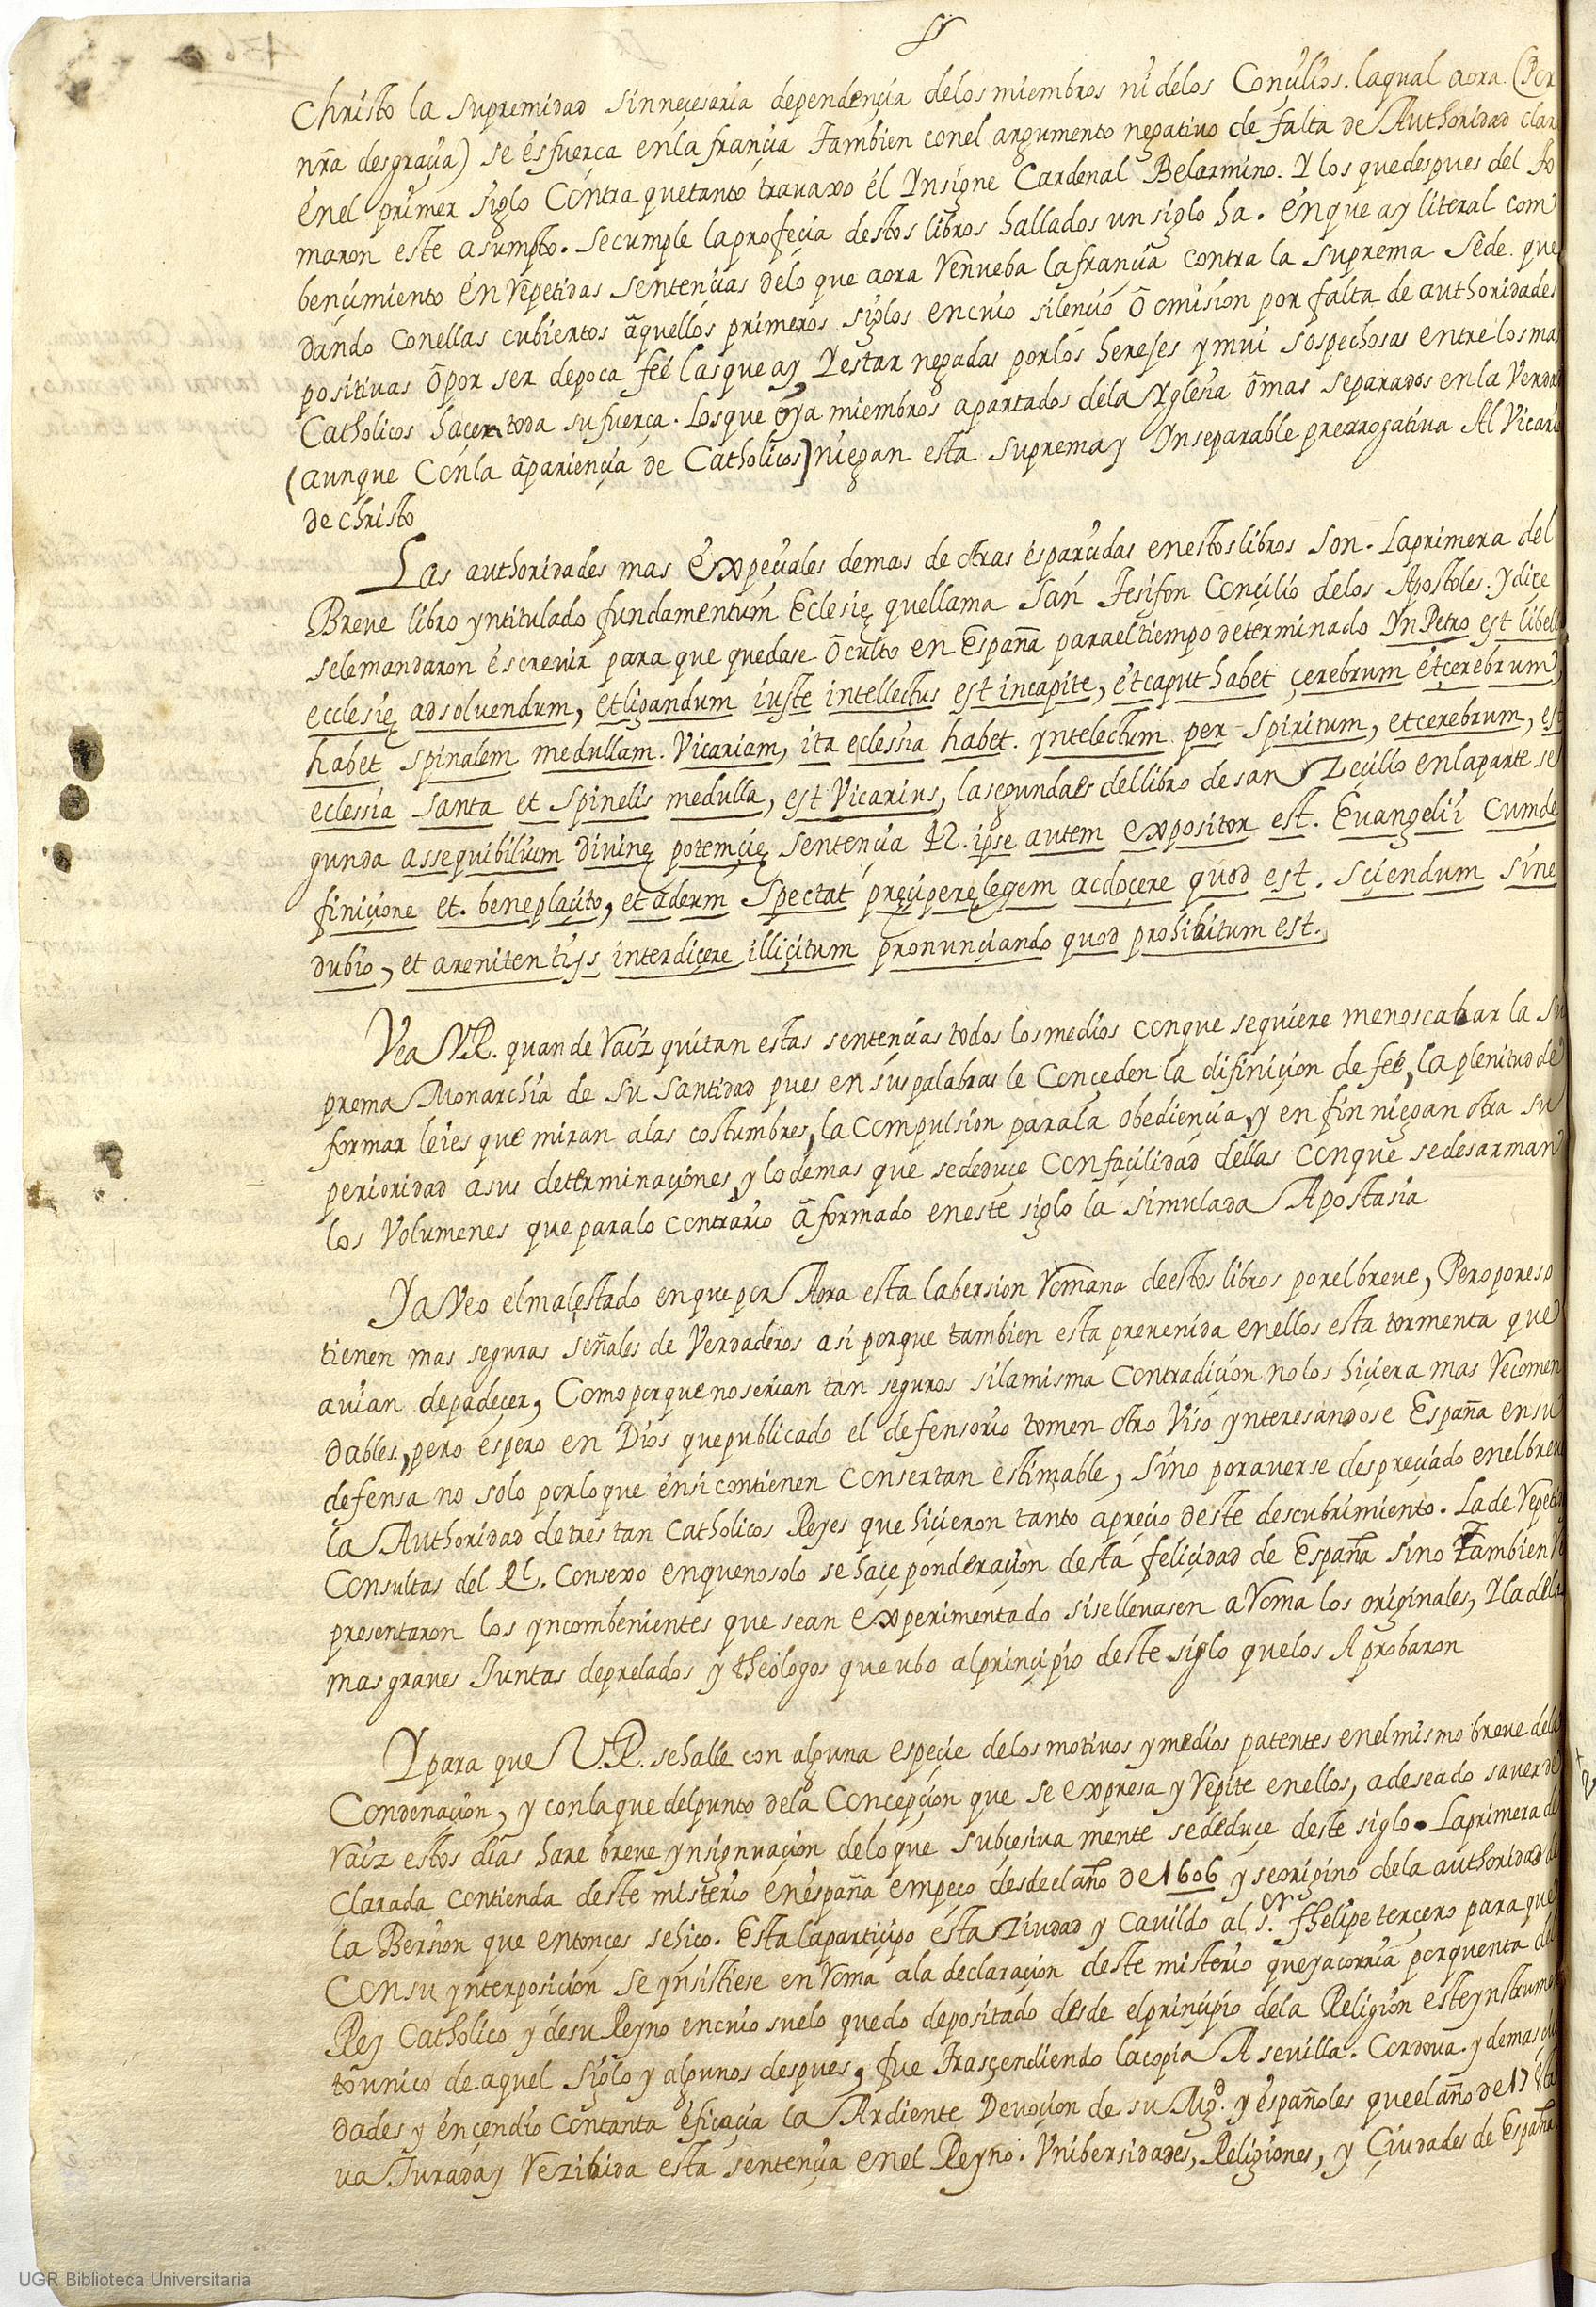 Christo la supremidad sinneçesaria dependençia delos miembros ni delos Conçilios. laqual aora (Por
nr̃a desgraçia) se esfuerça enla françia tambien conel argumento negatiuo de falta de Authoridad clara
enel primer siglo Contra quetanto trauaxo el Ynsigne Cardenal Belarmino. Y los quedespues del to
maron este asumpto. secumple laprofeçia destos libros hallados un siglo ha. enque ay literal com
bençimiento en rrepetidas sentençias delo que aora rrenueba lafrançia contra la suprema sede. que
dando conellas cubiertos aquellos primeros siglos encuio silençio o omision por falta de authoridades
positiuas o por ser depoca feé lasque ay Y estar negadas porlos hereses ymui sospechosas entre los mas
Catholicos haçen toda sufuerça. Losque oya miembros apartados dela Yglesia o mas separados enla Verdad
(aunque Conla apariençia de Catholicos) niegan esta suprema y Ynseparable prerrogatiua Al Vicario
de christo
Las authoridades mas expeçiales demas de otras esparçidas enestos libros son. Laprimera del
Breue libro yntitulado fundamentum Eclesię quellama San Tesifon Conçilio delos Apostoles. Y diçe
selemandaron escreuir para que quedase oculto en España parael tiempo determinado Yn Petro est libellus
ecclesię adsoluendum, etligandum iuste intellectus est incapite, etcaput habet çerebrum etçerebrum
habet spinalem medullam. Vicariam, ita eclessia habet. yntelectum per spiritum, etcerebrum, est
eclessia santa et spinelis medulla, est Vicarius, lasegundaes dellibro de san Zeçilio enlaparte se
gunda assequibilium diuinę potençię sentençia 42. ipse autem expositor est. Euangelii cumde
finiçione et. beneplaçito, et aderum spectat preçiperelegem acdoçere quod est. sçiendum sine
dubio, et areniten tijs interdiçere illiçitum pronunçiando quod prohibitum est.
Vea V.R. quan de rraiz quitan estas sentençias todos losmedios conque sequiere menoscabar la su
prema Monarchia de su santidad pues en sus palabras le Conçeden la difiniçion de feé, la plenitud de
formar leies que miran alas costumbres, la compulsion parala obediençia, y en fin niegan otra su
perioridad asus determinaçiones, y lo demas que sededuçe confaçilidad dellas conque sedesarman
los Volumenes que paralo contrario a formado eneste siglo la simulada Apostasia
Ya Veo elmalestado enque por Aora esta labersion rromana deestos libros porelbreue, Pero poreso
tienen mas seguras señales de Verdaderos asi porque tambien esta preuenida enellos esta tormenta que
auian depadeçer, Como porque noserian tan seguros silamisma contradiçion nolos hiçiera mas rrecomen
dables, pero espero en Dios quepublicado el defensorio tomen otro Viso ynteresandose España ensu
defensa no solo porloque ensi contienen consertan estimable, sino porauerse despreçiado enelbreue
la Authoridad detres tan catholicos Reyes que hiçieron tanto apreçio deste descubrimiento. La de rrepetidas
Consultas del Rl. Consexo enquenosolo sehaçe ponderaçion desta feliçidad de España sino tambien rre
presentaron los yncombenientes que sean experimentado sisellevasen arroma los originales, Yladelas
mas graues Juntas deprelados y theologos que ubo alprinçipio deste siglo quelos Aprobaron
Y para que V.R. sehalle con alguna espeçie delos motiuos ymedios patentes enelmismo breue dela
Condenaçion, y conlaque delpunto dela Concepçion que se expresa y rrepite enellos, a deseado sauer de
rraiz estos dias hare breue ynsignuaçion delo que subçesiua mente sededuçe deste siglo. Laprimera de
clarada contienda deste misterio enespaña empeço desdeelaño de 1606 y seorigino dela authoridad de
la Bersion que entonçes sehiço. Esta laparticipo esta Ziudad y Cauildo al s.or fhelipe terçero para que
consu ynterposicion se ynsistiese enrroma ala declaraçion deste misterio queyacorria porquenta del
Rey Catholico y desu Reyno encuio suelo quedo depositado desde elprinçipio dela Religion esteynstrumen
to unico de aquel siglo y algunos despues, fue trasçendiendo lacopia A seuilla. Cordoua. y demas çiu
dades y ençendio contanta eficaçia la Ardiente Deuoçion de su Mg.d y españoles queelaño de 17
ua Jurada y rrezibida esta sentençia enel Reyno. Vnibersidades, Religiones, y Çiudades de España
UGR Biblioteca Universitaria